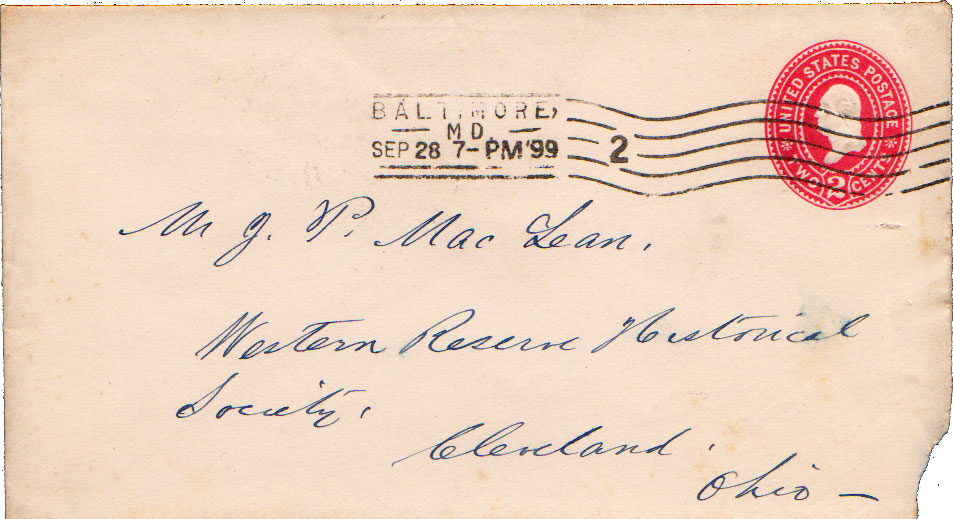 BALTIMORE,
MD.
SEP 28 7-PM '99
2
UNITED STATES POSTAGE
TWO 2 CENTS
M J. P. Mac Lean.
Western Reserve Historical
Society.
Cleveland.
Ohio —